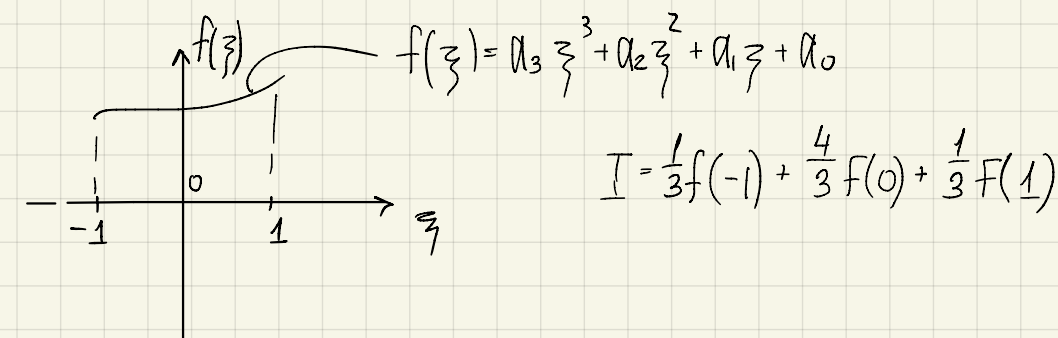 f(ξ)
f(ξ) = a₃ξ³ + a₂ξ² + a₁ξ + a₀
I = 1/3 f(-1) + 4/3 f(0) + 1/3 f(1)
0
-1 1 ξ